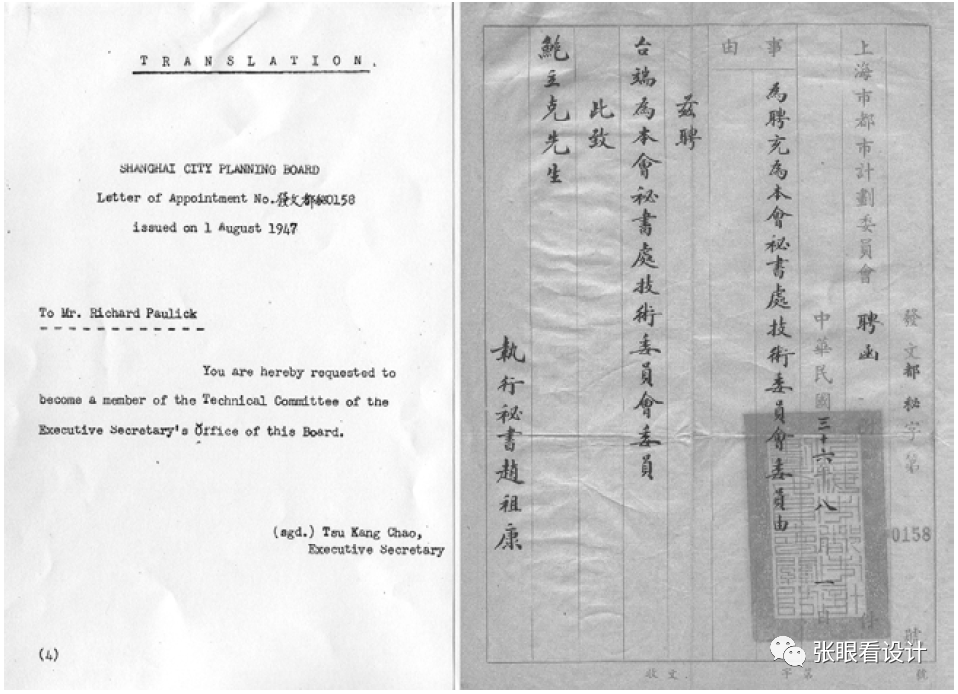 TRANSLATION.
SHANGHAI CITY PLANNING BOARD
Letter of Appointment No.發文都秘0158
issued on 1 August 1947
To Mr. Richard Paulick
You are hereby requested to
become a member of the Technical Committee of the
Executive Secretary's Office of this Board.
(sgd.) Tsu Kang Chao,
Executive Secretary
(4)
發文都秘字第0158號
上海市都市計劃委員會 聘函
中華民國三十六年八月一日
事由
為聘充為本會秘書處技術委員會委員由
茲聘
台端為本會祕書處技術委員會委員
此致
鮑立克先生
執行祕書趙祖康
收文 字 號
张眼看设计